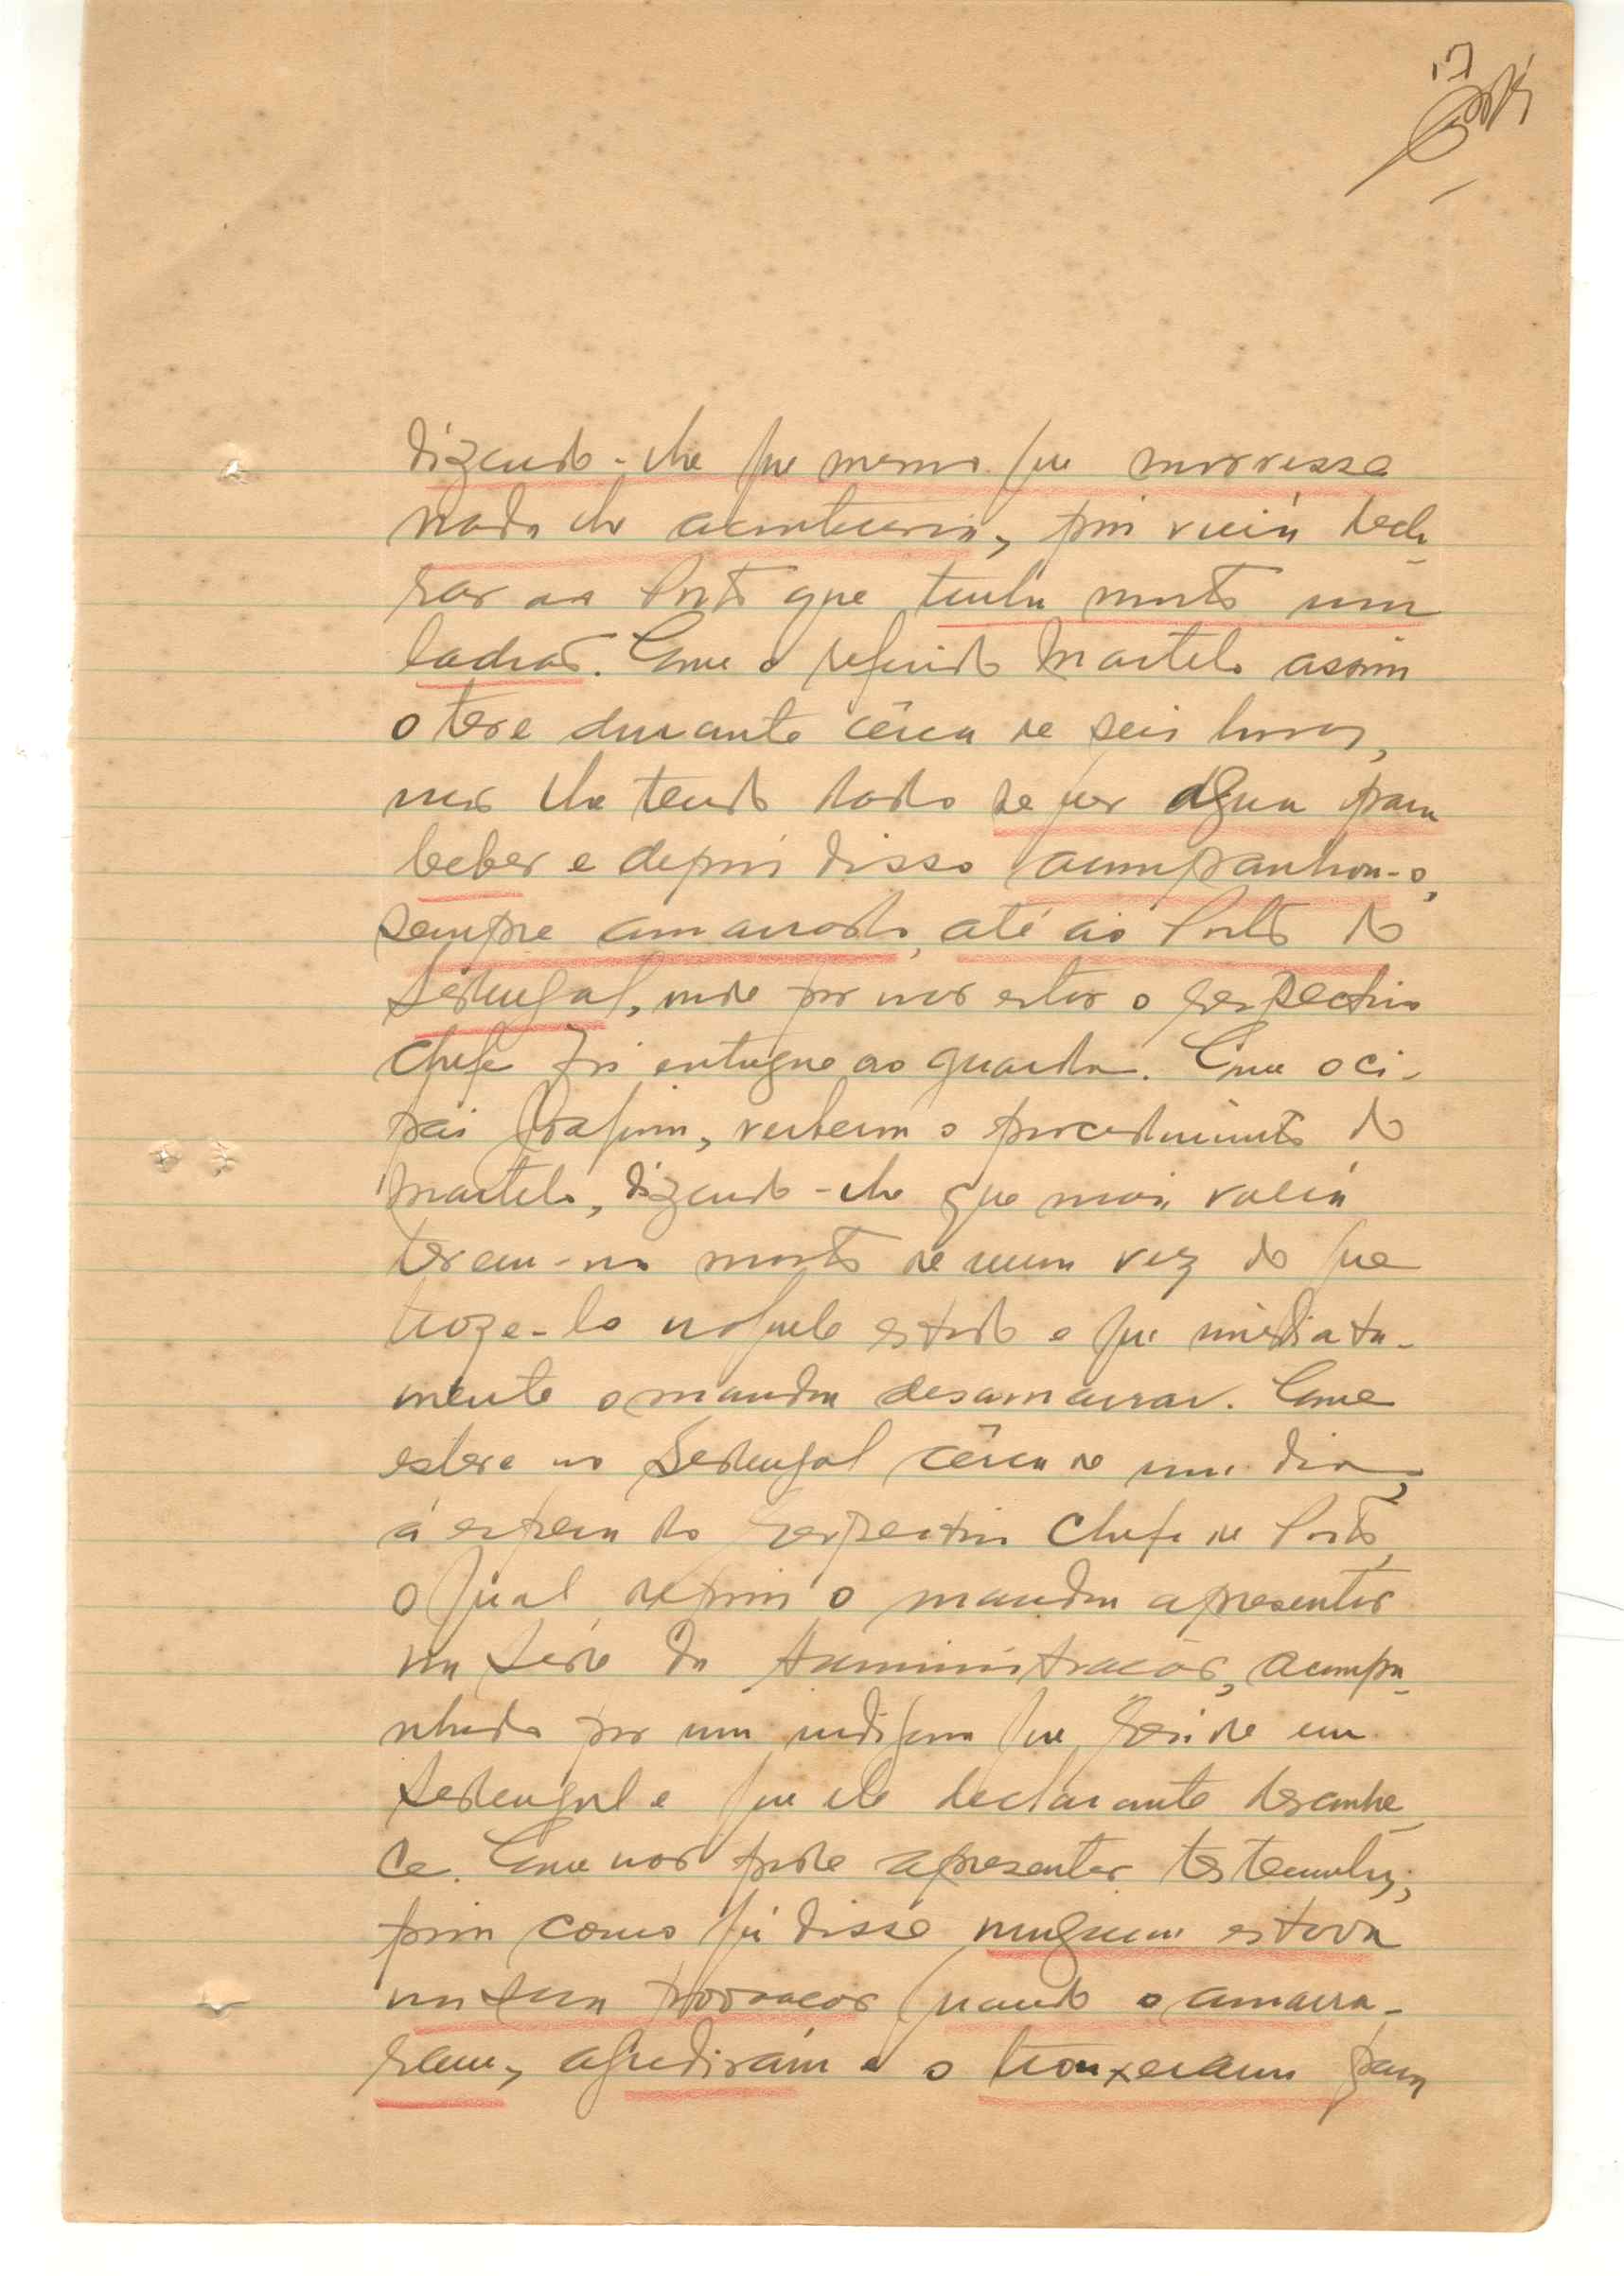 17
dizendo-lhe que mesmo que morresse
nada lhe aconteceria, pois viria decla-
rar ao Posto que tinha morto um
ladrão. Que o referido Martelo assim
o teve durante cêrca de seis horas,
não lhe tendo dado sequer agua para
beber e depois disso acompanhou-o,
sempre amarrado, até ao Posto do
Sedengal, onde por não estar o respectivo
chefe foi entregue ao guarda. Que o ci-
pai verberou o procedimento do
Martelo, dizendo-lhe que mais valia
terem-no morto de uma vez do que
traze-lo naquele estado e que imediata-
mente o mandou desamarrar. Que
esteve no Sedengal cêrca de um dia,
á espera do respectivo Chefe de Posto,
o qual depois o mandou apresentar
na Séde da Administração, acompa-
nhado por um indigena que reside em
Sedengal e que ele declarante desconhe-
ce. Que não pode apresentar testemunhas,
pois como já disse ninguem estava
na sua povoação quando o amarra-
ram, agrediram e o trouxeram para